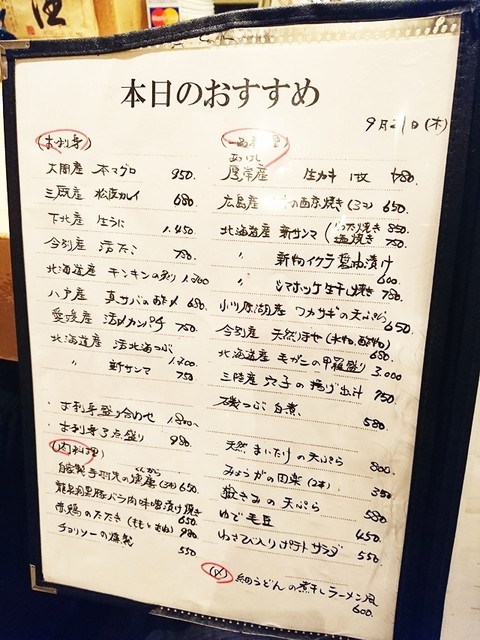 本日のおすすめ
9月21日(木)
(お刺身)
大間産 本マグロ 950.
三厩産 松皮カレイ 680.
下北産 生うに 1,450
今別産 活だこ 750.
北海道産 キンキンの炙り 1,200
八戸産 真サバの 680.
愛媛産 活〆カンパチ 750.
北海道産 活北海つぶ 1,200
〃 新サンマ 750
・お刺身盛り合わせ 1,800~
・お刺身3点盛り 980.
(肉料理)
自家製手羽先の燻製(3本) 650.
豚バラ肉味噌漬け焼き 650.
赤鶏のたたき(ももorむね) 980.
チョリソーの燻製 550
(一品料理)
厚岸産 生カキ 1ヶ 480.
広島産 の西京焼き(3コ) 650.
北海道産 新サンマ(わた焼き 850
塩焼き 750.
〃 新物イクラ醤油漬け 600.
〃 シマホッケ生干し焼き 780.
小川原湖産 ワカサギの天ぷら 650.
今別産 天然ほや(水物, 酢物) 650.
北海道産 毛ガニの甲羅盛り 3,000
三陸産 穴子の揚げ出汁 950.
磯つぶ旨煮. 580.
天然まいたけの天ぷら 800.
みょうがの田楽(2本) 350
の天ぷら 580
ゆで毛豆 450.
わさび入りポテトサラダ 550.
(〆) 細うどんの煮干しラーメン風 600.